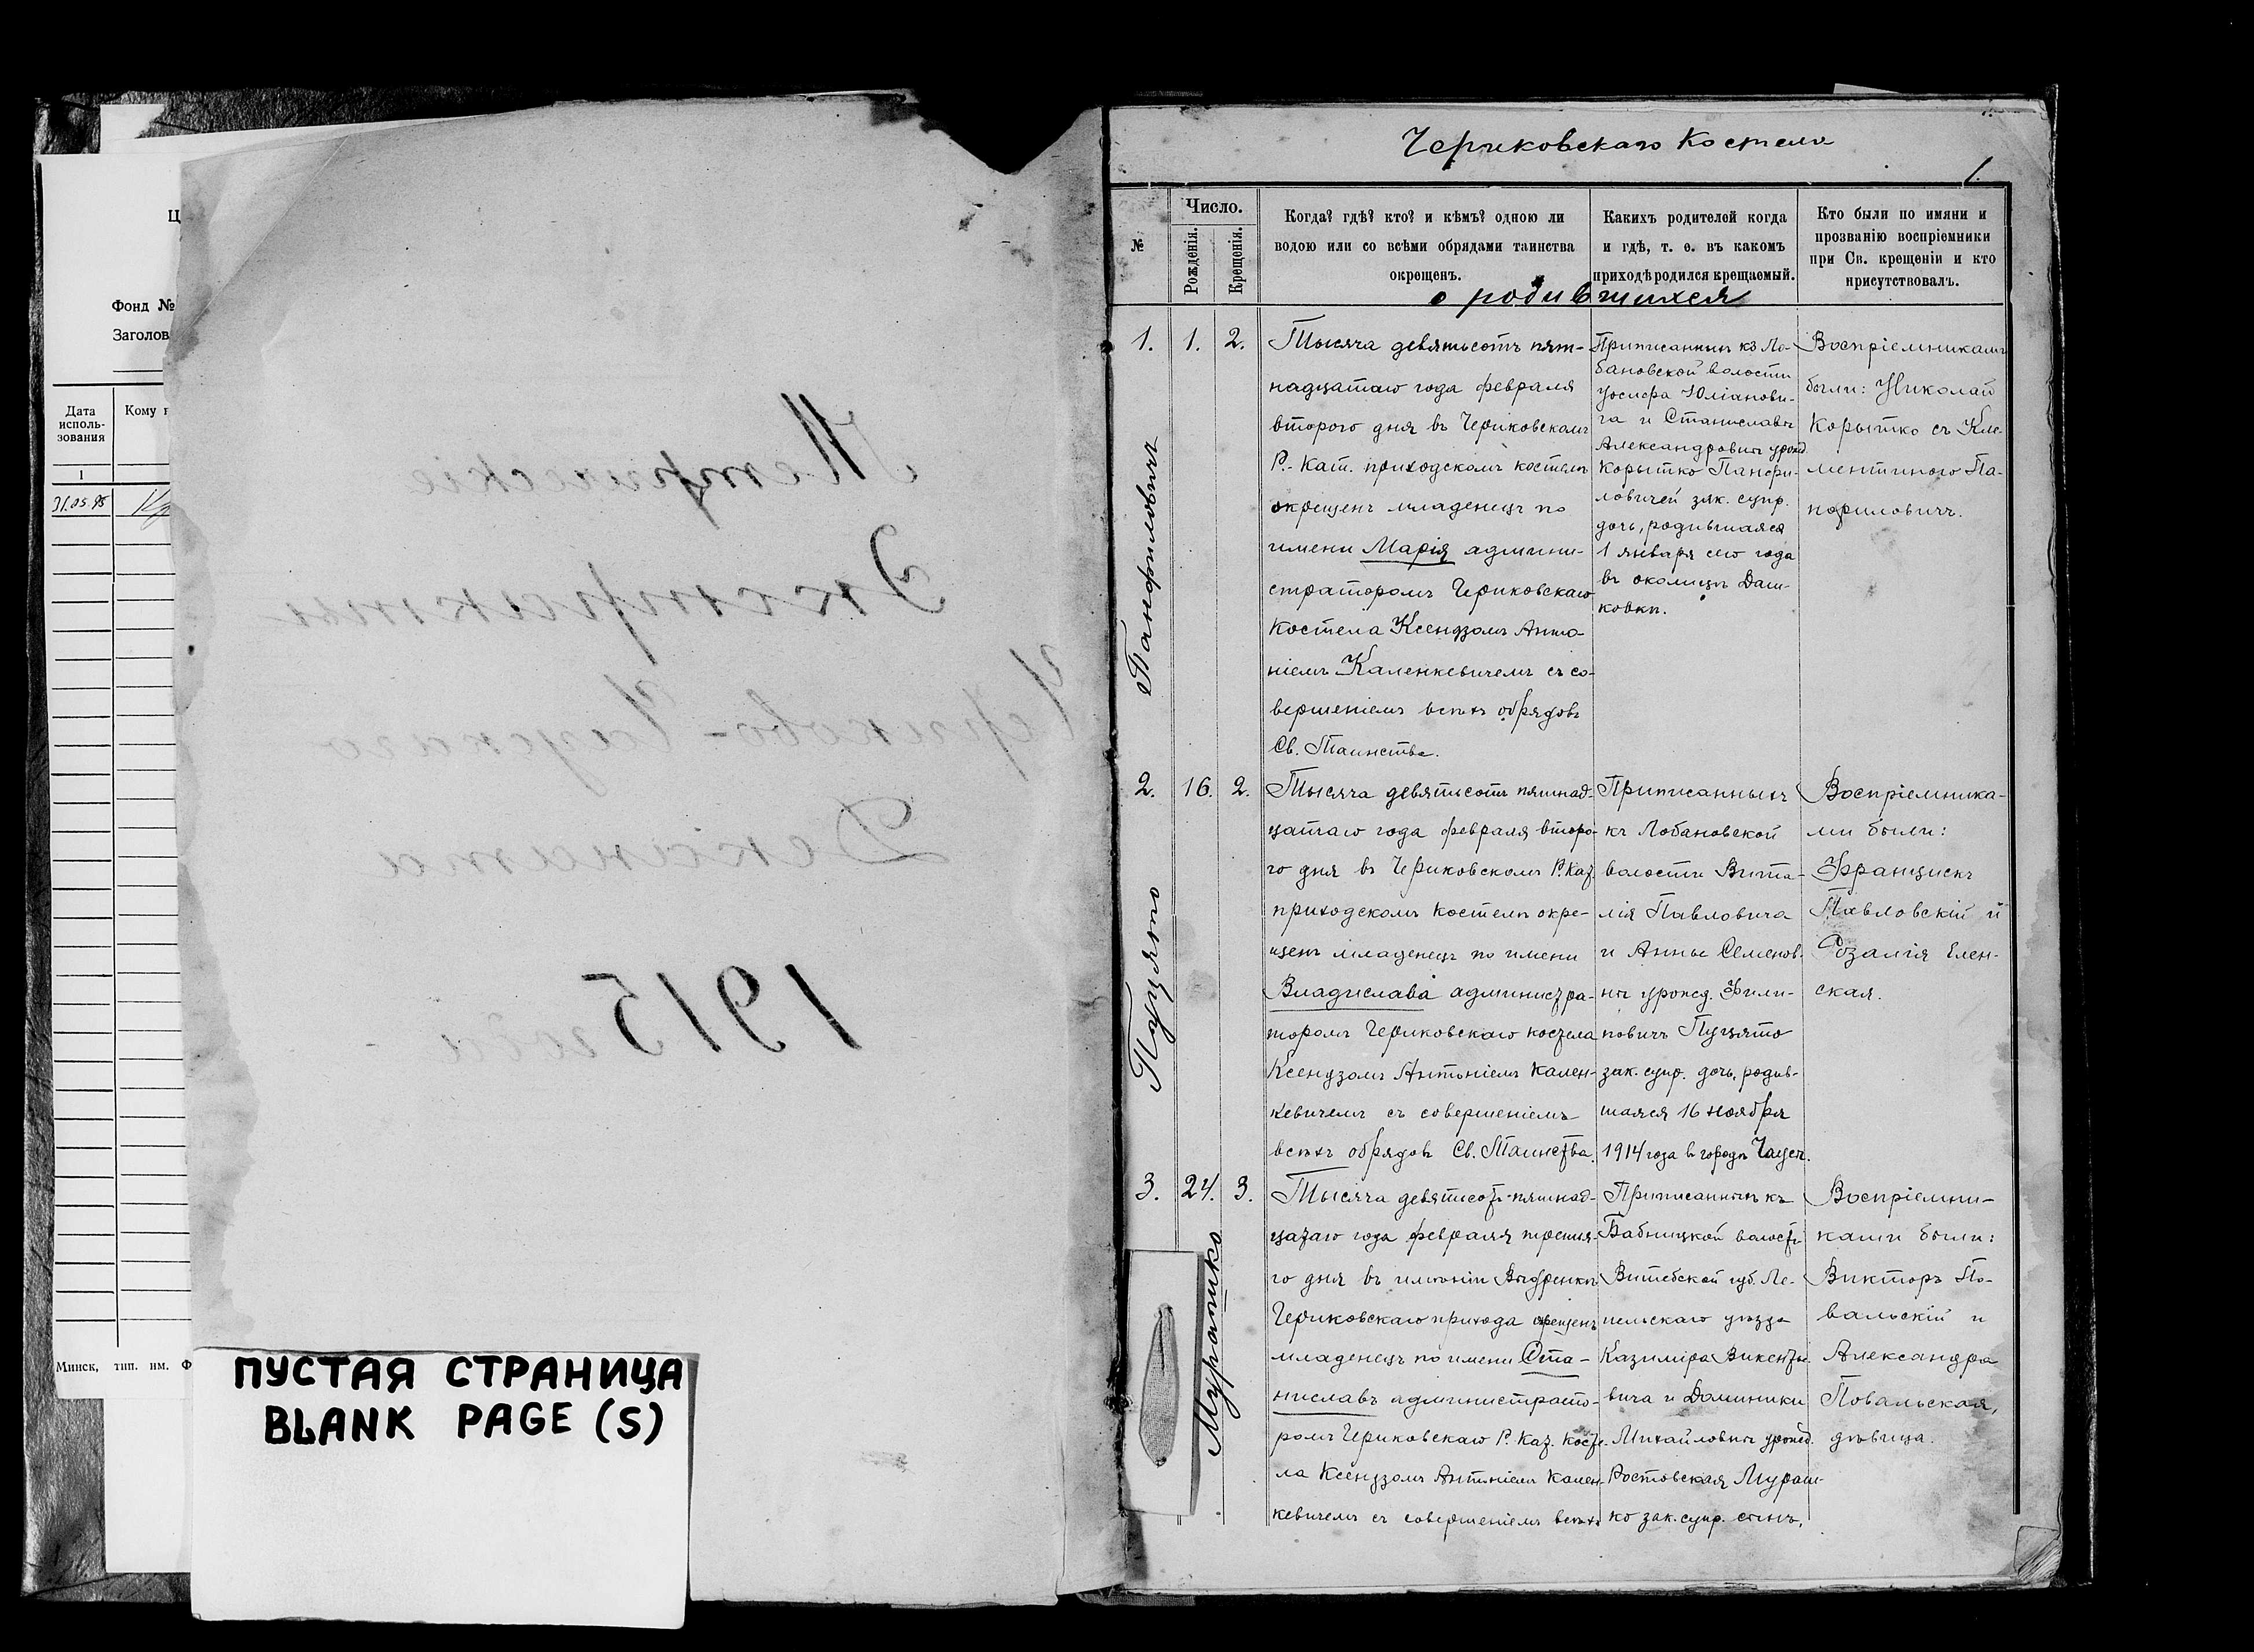 Ц
Фонд №
Заголов
Дата
исполь-
зования
Кому
1
31.05.95
Минск, тип. им. Ф
Метрическіе
Экстракты
Чериково-Чаусскаго
Деканата
1915 года
ПУСТАЯ СТРАНИЦА
BLANK PAGE (S)
Чериковскаго Костела
1.
№
Число.
Рожденія.
Крещенія.
Когда? гдѣ? кто? и кѣмъ? одною ли
водою или со всѣми обрядами таинства
окрещенъ.
Какихъ родителей когда
и гдѣ, т. е. въ какомъ
приходѣ родился крещаемый.
Кто были по имяни и
прозванію воспріемники
при Св. крещеніи и кто
присутствовалъ.
о родившихся
1.
1.
2.
Панфиловичъ
Тысяча девятьсотъ пят-
надцатаго года февраля
второго дня въ Чериковскомъ
Р.-Кат. приходскомъ костелѣ
окрещенъ младенецъ по
имени Марія админи-
страторомъ Чериковскаго
Костела Ксендзомъ Анто-
ніемъ Каленкевичемъ съ со-
вершеніемъ всѣхъ обрядовъ
Св. Таинства.
Приписанныхъ къ Ло-
бановской волости
Іосифа Юліанови-
ча и Станиславы
Александровны урожд.
Корытко Панфи-
ловичей зак. супр.
дочь, родившаяся
1 января сего года
въ околицѣ Даш-
ковкѣ.
Воспріемниками
были: Николай
Корытко съ Кле-
ментиною Па-
нфиловичъ.
2.
16.
2.
Пуцято
Тысяча девятьсотъ пятнад-
цатаго года февраля второ-
го дня въ Чериковскомъ Р. Кат.
приходскомъ костелѣ окре-
щенъ младенецъ по имени
Владислава администра-
торомъ Чериковскаго костела
Ксендзомъ Антоніемъ Кален-
кевичемъ съ совершеніемъ
всѣхъ обрядовъ Св. Таинства.
Приписанныхъ
къ Лобановской
волости Вита-
лія Павловича
и Анны Семенов-
ны урожд. Фили-
повичъ Пуцято
зак. супр. дочь, родив-
шаяся 16 ноября
1914 года въ городѣ Чаусы.
Воспріемника-
ми были:
Францискъ
Павловскій и
Розалія Елен-
ская.
3.
24.
3.
Мурашко
Тысяча девятьсотъ пятнад-
цатаго года февраля третья-
го дня въ имѣніи
Чериковскаго прихода окрещенъ
младенецъ по имени Ста-
ниславъ администрато-
ромъ Чериковскаго Р. Кат. Косте-
ла Ксендзомъ Антоніемъ Кален-
кевичемъ съ совершеніемъ всѣхъ
Приписанныхъ къ
Бабницкой волости
Витебской губ. Ле-
пельскаго уѣзда
Казиміра Викентье-
вича и Доминики
Михайловны урожд.
Ростовская Мураш-
ко зак. супр. сынъ,
Воспріемни-
ками были:
Викторъ По-
вальскій и
Александра
Повальская,
дѣвица.